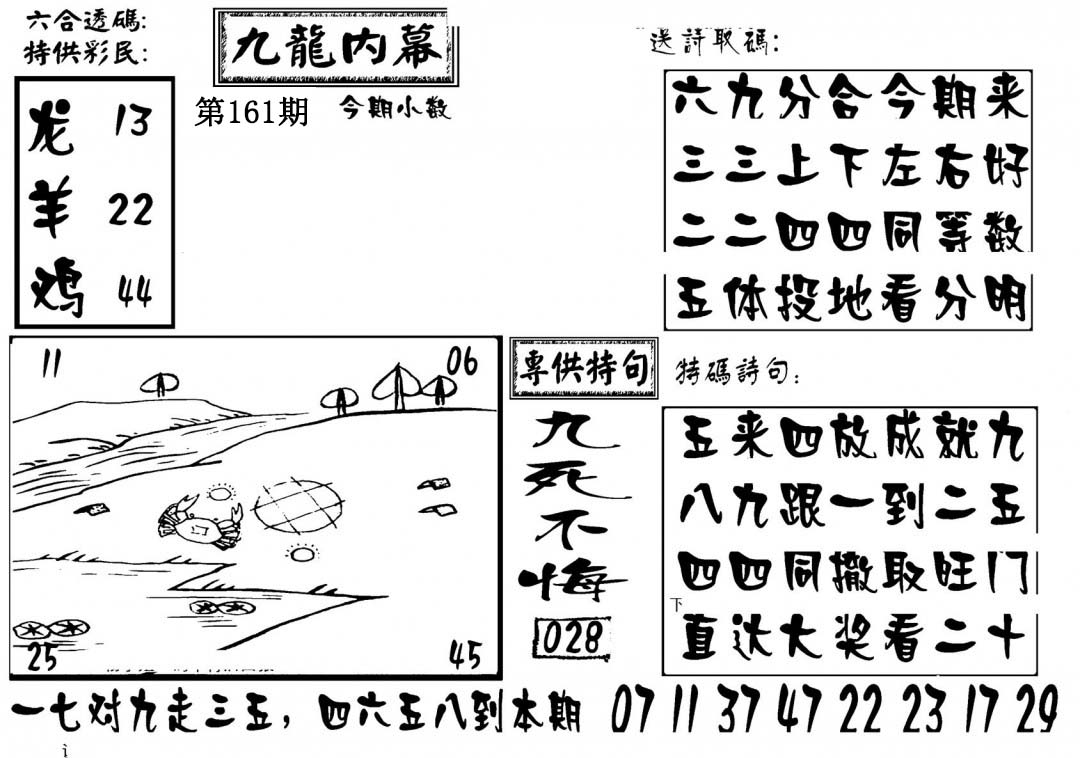 六合透碼:
特供彩民:
九龍內幕
第161期
今期小数
龙 13
羊 22
鸡 44
送詩取碼:
六九分合今期来
三三上下左右好
二二四四同等数
五体投地看分明
11
06
25
45
專供特句
九死不悔
028
特碼詩句:
五来四放成就九
八九跟一到二五
四四同撤取旺门
下
直达大奖看二十
一七对九走三五，四六五八到本期 07 11 37 47 22 23 17 29
i